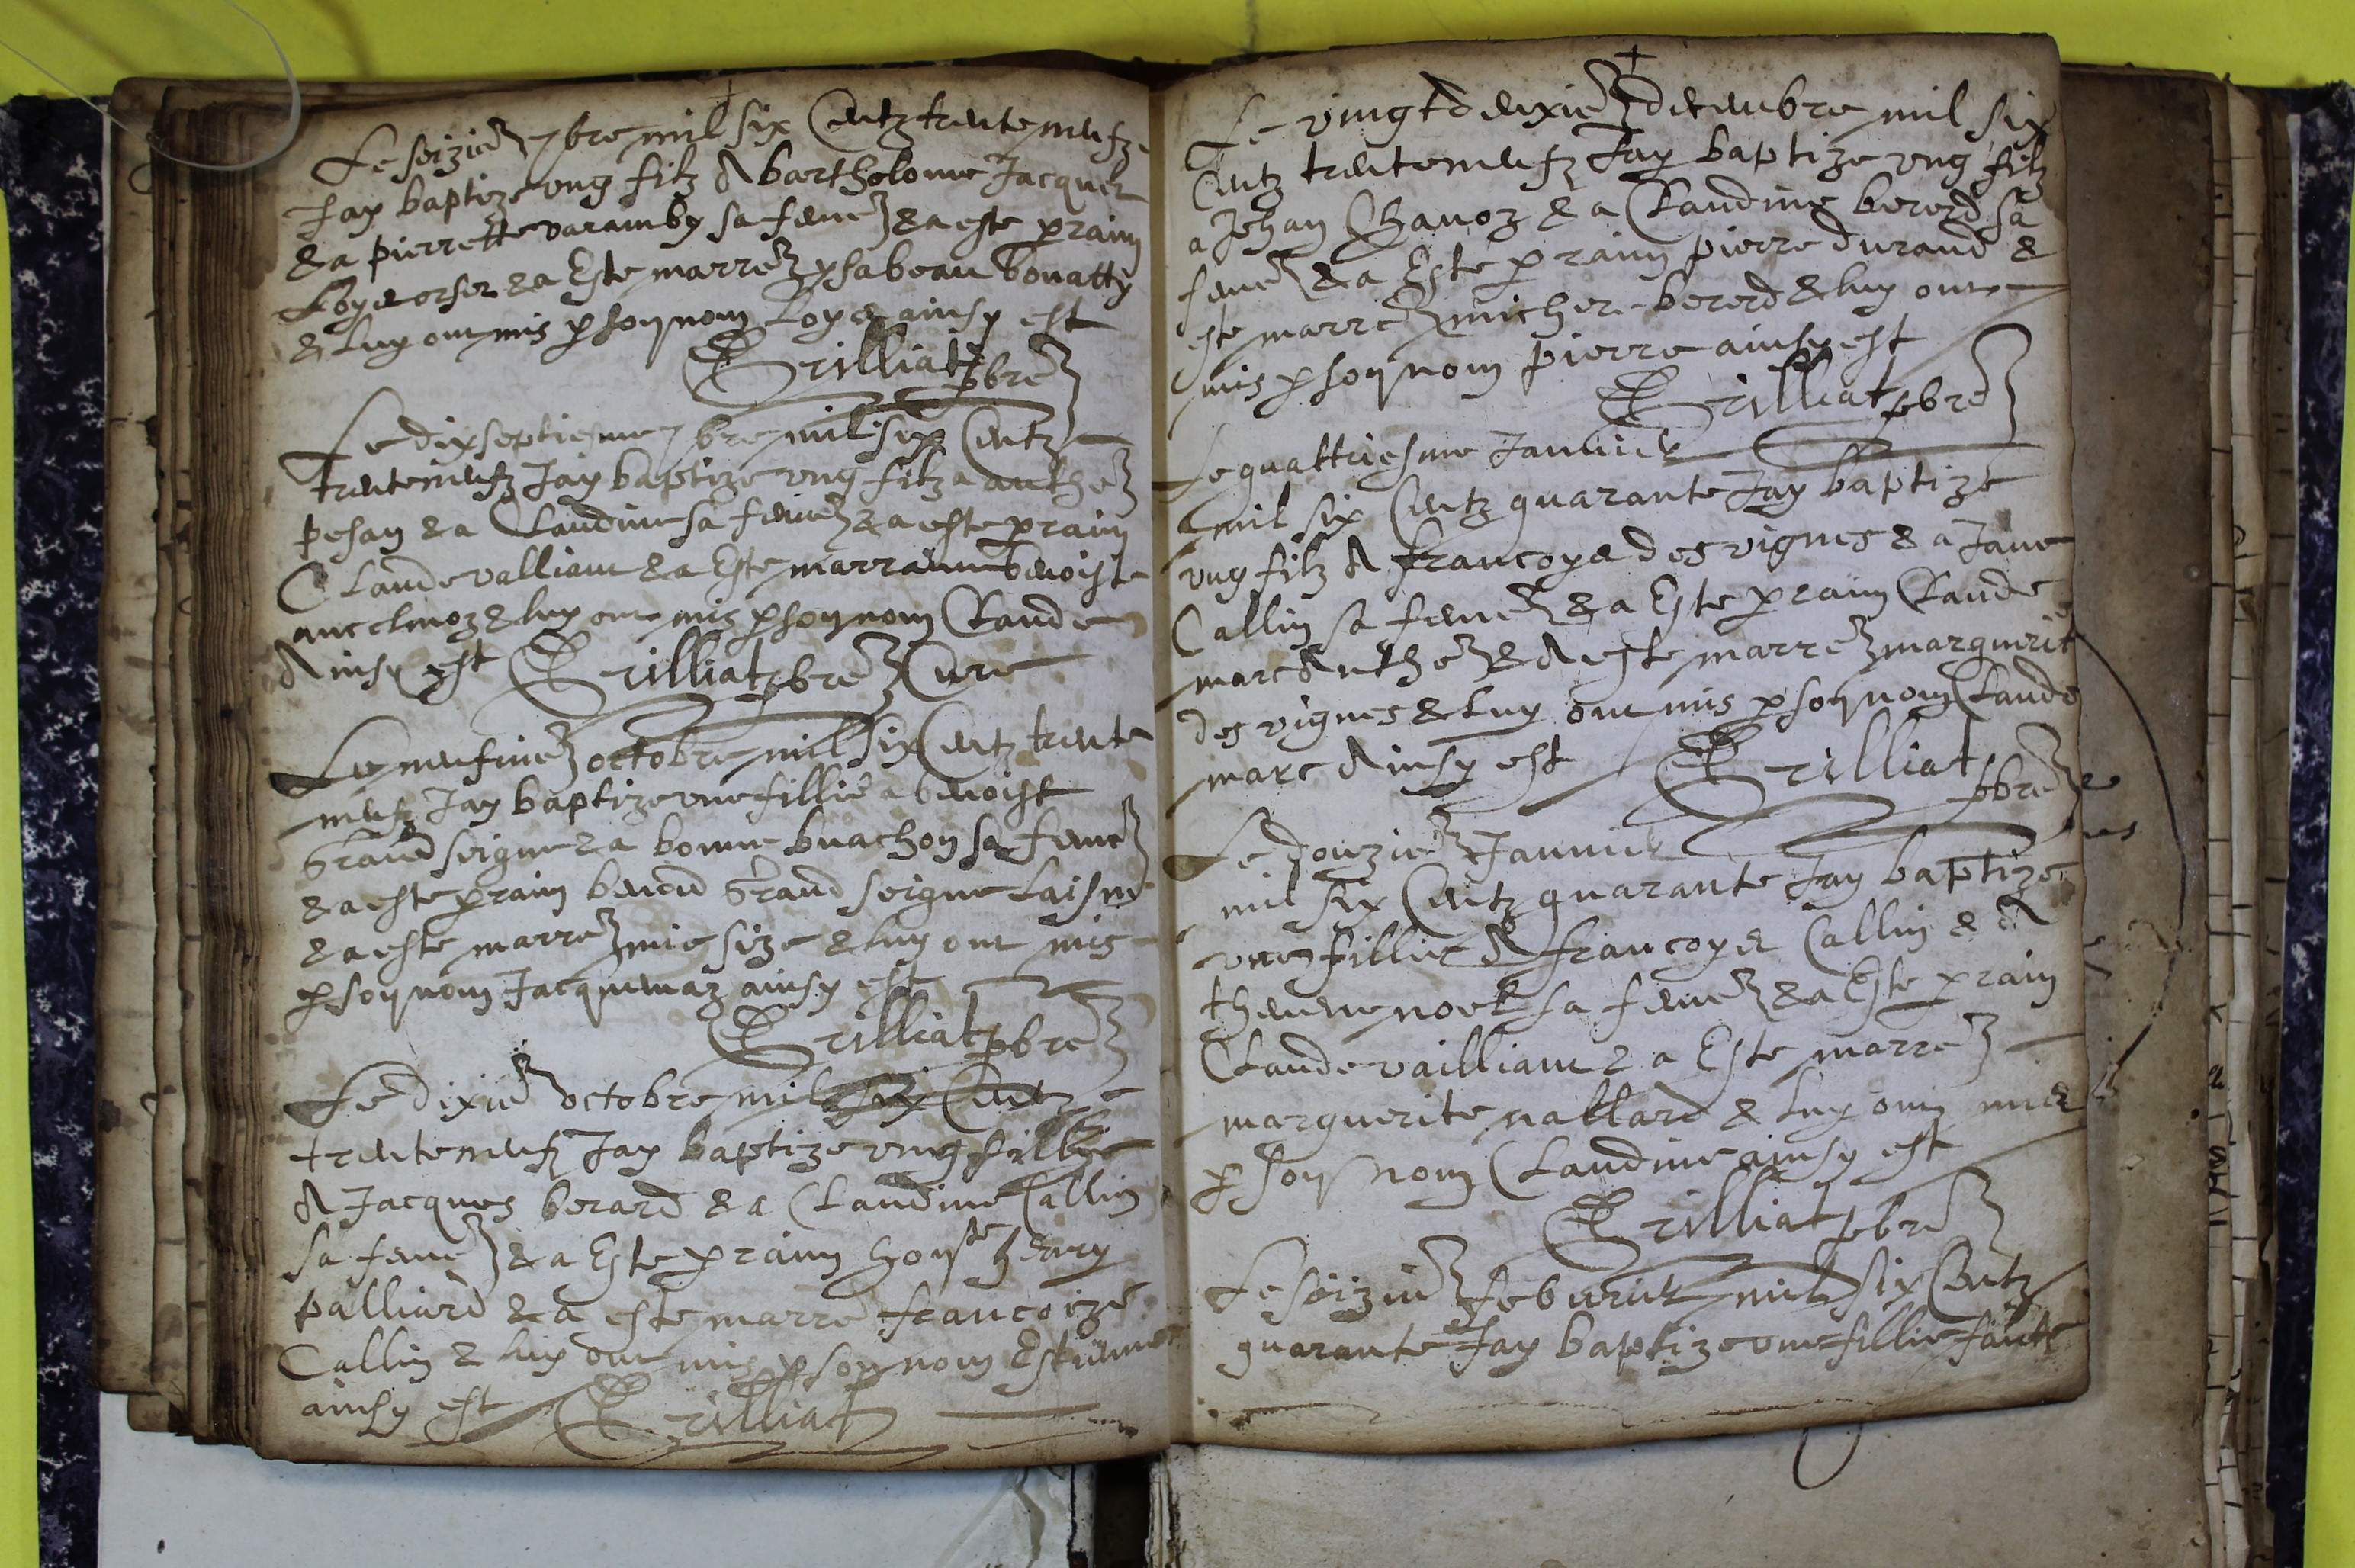 Le seizie 7bre mil six Centz trente neufz
Jay baptize ung filz A bartholome Jacquet
& a pierrette varamby sa feme & a este prain
Loys & a Este marre ysabeau bouatty
& luy ont mis p son nom Loys ainsy est
Trilliat pbre
Le dixseptiesme 7bre mil six Centz
trente neufz Jay baptize ung filz a anthe
pesay & a Claudine sa feme & a este prain
Claude valliant & a Este marraine benoiste
& luy ont mis p son nom Claude
Ainsy est Trilliat pbre Cure
Le neufvie octobre mil six Centz trente
neufz Jay baptize une fillie a benoist
Grand seigne & a bonne buachon sa feme
& a este prain benoid Grand seigne laisne
& a este marre mie size & luy ont mis
p son nom Jacquemaz ainsy est
Trilliat pbre
Le dixie octobre mil six Centz
trente neufz Jay baptize ung fillye
A Jacques berard & a Claudine Callin
sa feme & a Este prain honste henry
palliard & a este marre francoize
Callin & luy ont mis p son nom Estienne
ainsy est Trilliat
Le vingt deuxie decembre mil six
Centz trente neufz Jay baptize ung filz
a Jehan Chanoz & a Claudine bererd sa
feme & a Este prain pierre durand &
este marre michee bererd & luy ont
mis p son nom pierre ainsy est
Trilliat pbre
Le quattriesme Januier
mil six Centz quarante Jay baptize
ung filz A francoys des vignes & a Jane
Callin sa feme & a Este prain Claude
marc Anthe & A este marre marguerit
des vignes & luy ont mis p son nom Claude
marc Ainsy est Trilliat
pbre
Le douzie Januier
mil six Centz quarante Jay baptize
une fillie A francoys Callin & A
thevene noel sa feme & a Este prain
Claude vailliant & a Este marre
marguerite nallard & luy ont mis
p son nom Claudine ainsy est
Trilliat pbre
Le seizie feburier mil six Centz
quarante Jay baptize une fillie faite